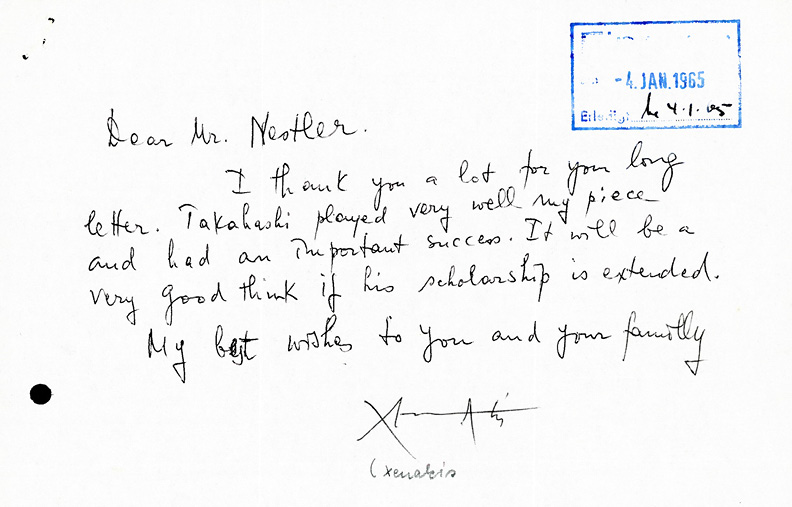 -4. JAN. 1965
Erledigt: 4.1.65
Dear Mr. Nestler.
I thank you a lot for your long
letter. Takahashi played very well my piece
and had an important success. It will be a
very good think if his scholarship is extended.
My best wishes to you and your familly
Xenakis
(Xenakis